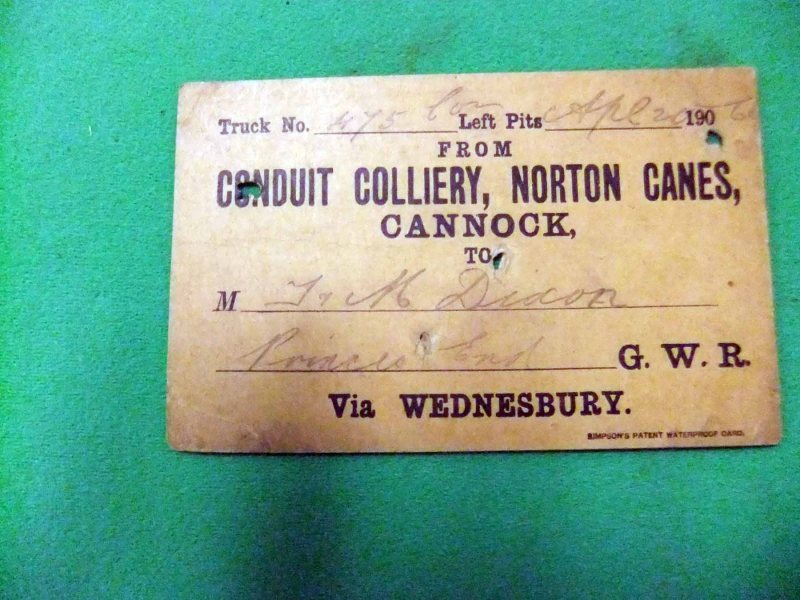 Truck No. 475 Left Pits Apl 20 1906
FROM
CONDUIT COLLIERY, NORTON CANES,
CANNOCK,
TO
M T. M Dixon
Princes End G. W. R.
Via WEDNESBURY.
SIMPSON'S PATENT WATERPROOF CARD.